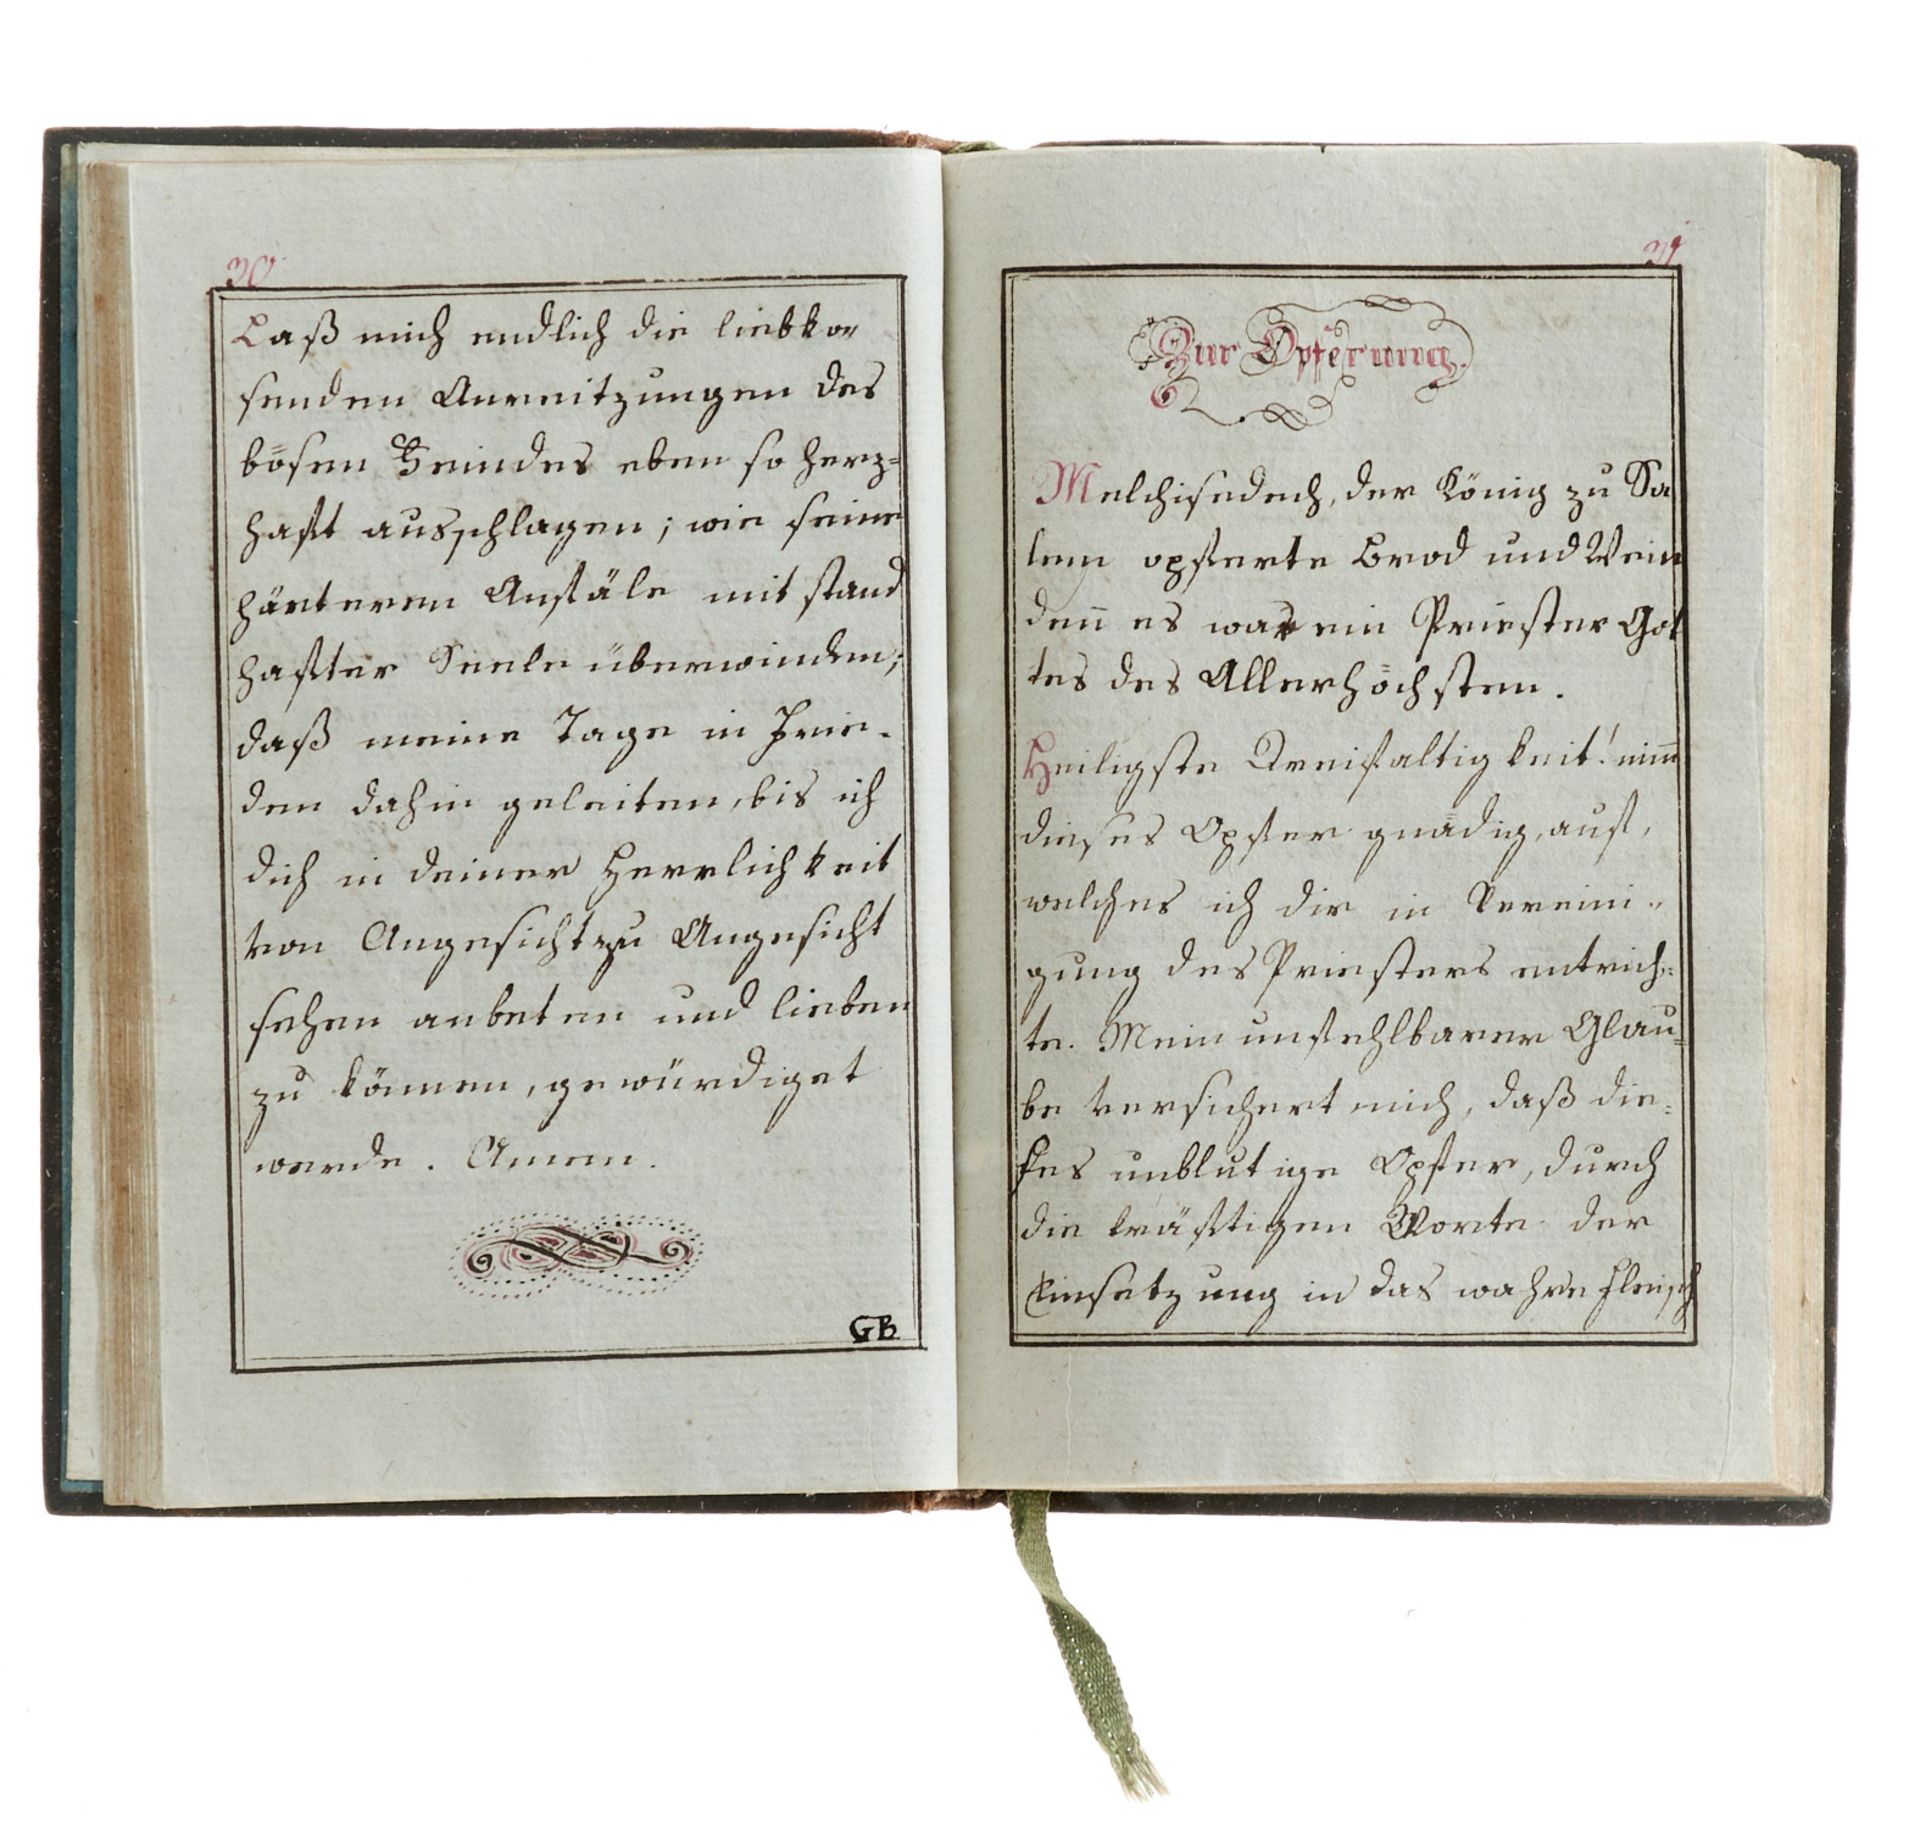 30
Laß mich endlich die liebko„
senden Anreitzungen des
bösen Feindes eben so herz=
haft ausschlagen; wie seine
härteren Anfäle mit stand
hafter Seele überwinden;
daß meine Tage in Frie-
den dahin geleiten, bis ich
dich in deiner Herrlichkeit
von Angesicht zu Angesicht
sehen anbeten und lieben
zu können, gewürdiget
werde. Amen.
GB
31
Zur Opferung.
Melchisedech, der König zu Sa
lem opferte Brod und Wein
den̄ es war ein Priester Got
tes des Allerhöchsten.
Heiligste Dreifaltigkeit! nim̄
dieses Opfer gnädig, auf,
welches ich dir in Vereini„
gung des Priesters entrich=
te. Mein unfehlbarer Glau=
be versichert mich, daß die=
ses unblutige Opfer, durch
die kräftigen Worte der
Einsetzung in das wahre Fleisch